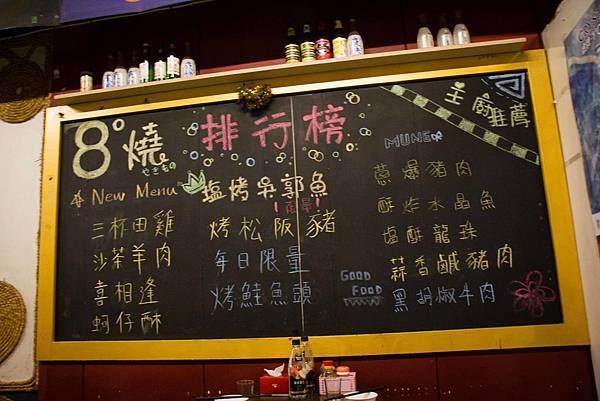 8°燒
やきもの
New Menu
三杯田雞
沙茶羊肉
喜相逢
蚵仔酥
排行榜
塩烤吳郭魚
烤松阪豬
每日限量
烤鮭魚頭
主廚推薦
MUNE
蔥爆豬肉
酥炸水晶魚
塩酥龍珠
蒜香鹹豬肉
黑胡椒牛肉
GOOD
FOOD